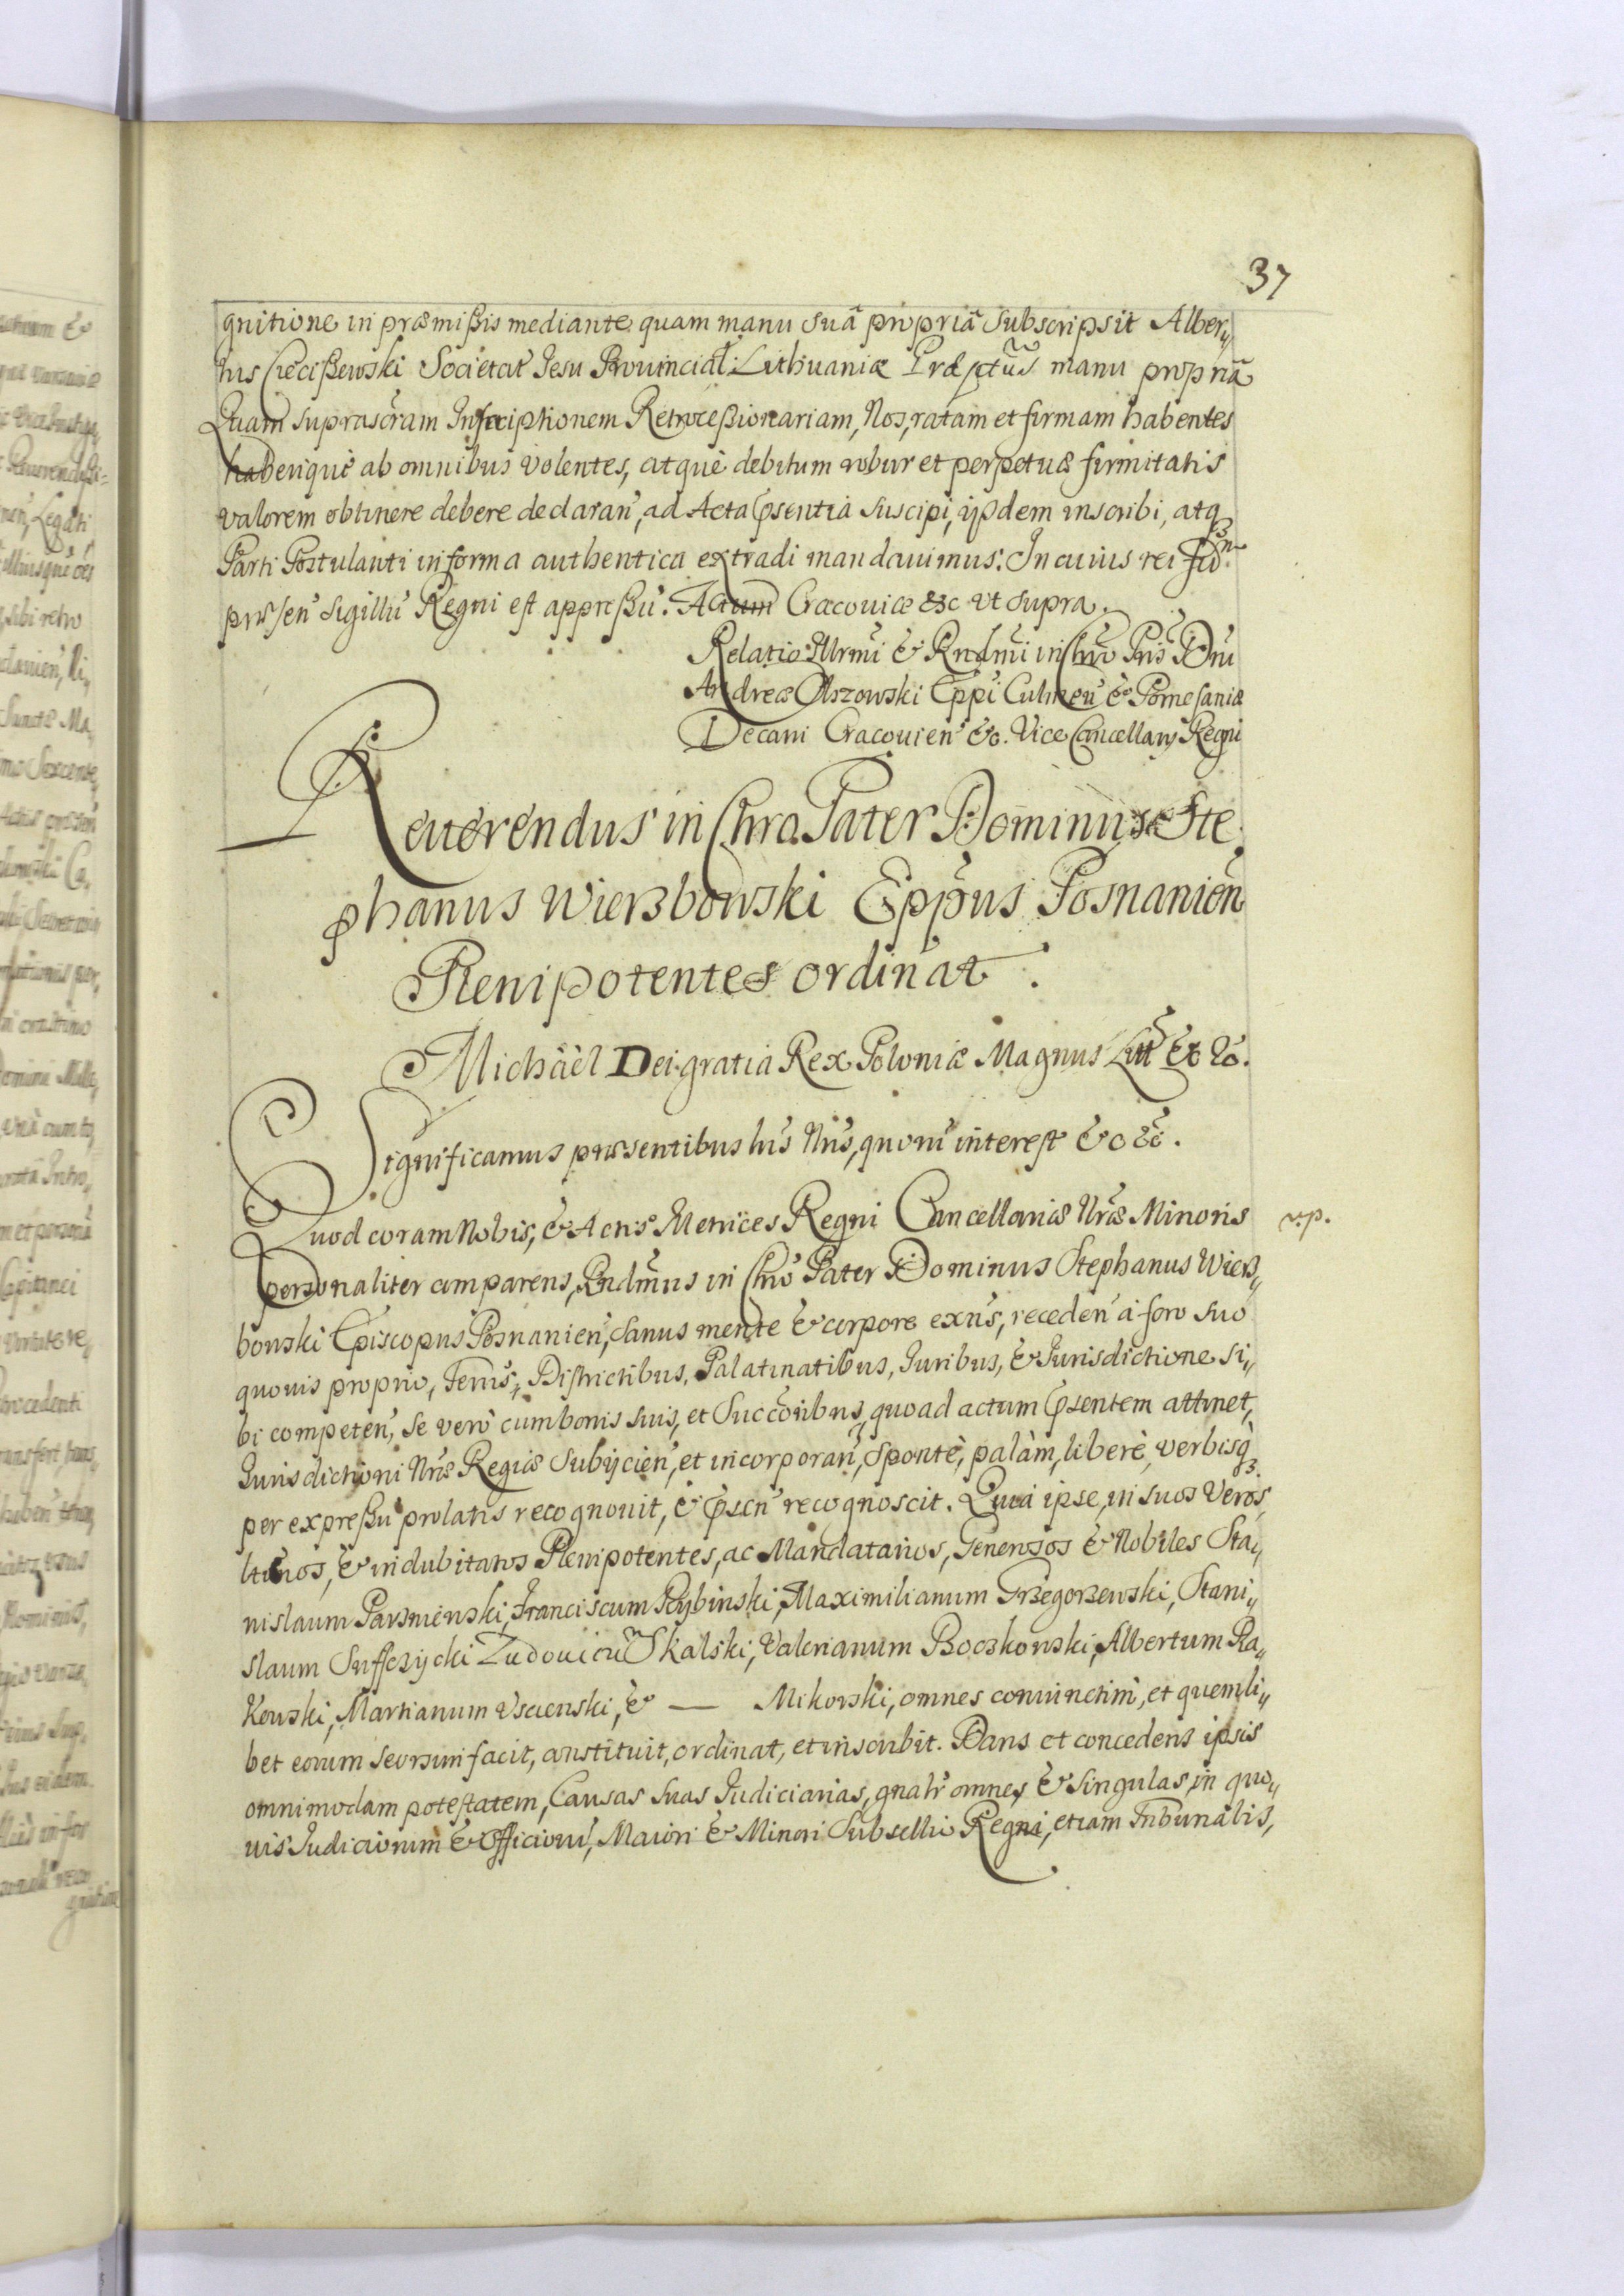 37
gnitione in præmißis mediante quam manu suâ propriâ subscripsit Alber,,
tus Ciecißewski Societat Jesu Prouincial: Lithuaniæ manu propriâ
Quam suprascrãm Inscriptionem Retrocessionariam, Nos, ratam et firmam habentes
haberiquè ab omnibus volentes, atquè debitum robur et perpetuæ firmitatis
valorem obtinere debere declaran, ad Acta pñsentia suscipi, ijsdem inscribi, atq3
Parti Postulanti in forma authentica extradi mandauimus. In cuius rei fid
præsen sigillũ Regni est appreßũ. Actum Cracouiæ &c vt supra.
Relatio Illrmi & Rndmi in Chro Pris Dni
Andreæ Olszowski Eppi Culmen & Pomesaniæ
Decani Cracouien &c. Vice Cancellarij Regni
Reuerendus in Chro Pater Dominus Ste,
phanus Wierzbowski Eppus Posnanien
Plenipotentes ordinat.
Michàèl Dei gratia Rex Poloniæ Magnus Litt &c &c.
Significamus præsentibus his Nris, quorũ interest &c &c.
Quod coram Nobis, & Actis Metrices Regni Cancellariæ Nræ Minoris
personaliter comparens, Rndmus in Chro Pater Dominus Stephanus Wierz,,
bowski Episcopus Posnanien, sanus mente & corpore exñs, receden à foro suo
quouis proprio, Terris, Districtibus, Palatinatibus, Juribus, & Jurisdictione si,,
bi competen, se verò cum bonis suis, et Succoribus, quoad actum pñsentem attinet,
Jurisdictioni Nræ Regiæ subijcien, et incorporan, spontè, palàm, liberè, verbisq3
per expreßũ prolatis recognouit, & pñsen recognoscit. Quià ipse, in suos Veros,
ltimos, & indubitatos Plenipotentes, ac Mandatarios, Generosos & Nobiles Sta,,
nislaum Parsmienski, Franciscum Rybinski, Maximilianum Grzegorzewski, Stani,,
slaum Suffczycki Ludouicũ Skalski, Valerianum Boczkowski, Albertum Ra,,
kowski, Martianum Vscienski, & — Mikorski, omnes coniunctim, et quemli,,
bet eorum seorsim facit, constituit, ordinat, et inscribit. Dans et concedens ipsis
omnimodam potestatem, Causas suas Judiciarias, gnalr omnes & singulas, in quo,,
uis Judiciorum & Officiorũ, Maiori & Minori Subsellio Regni, etiam Tribunalis,
v.p.